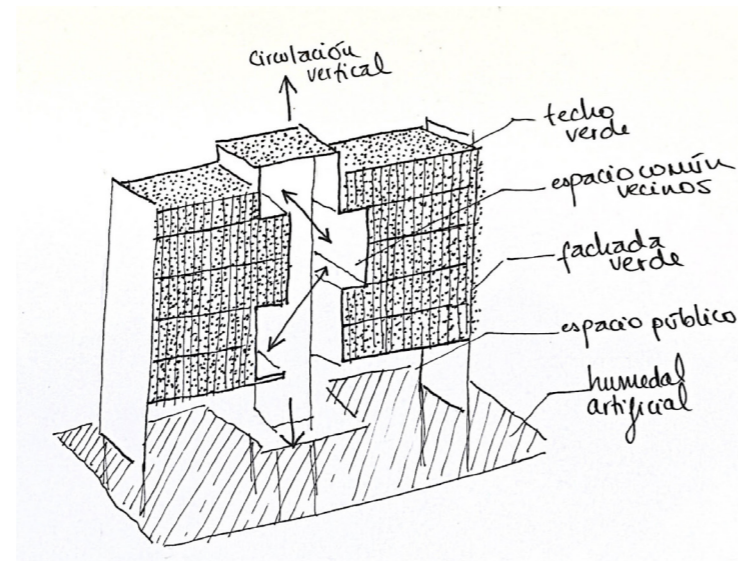 circulación
vertical
techo
verde
espacio común
vecinos
fachada
verde
espacio público
humedal
artificial